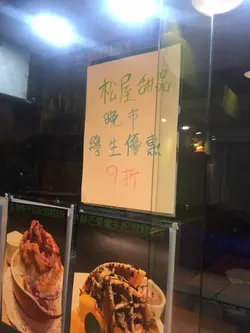 松屋甜品
晚市
學生優惠
9折